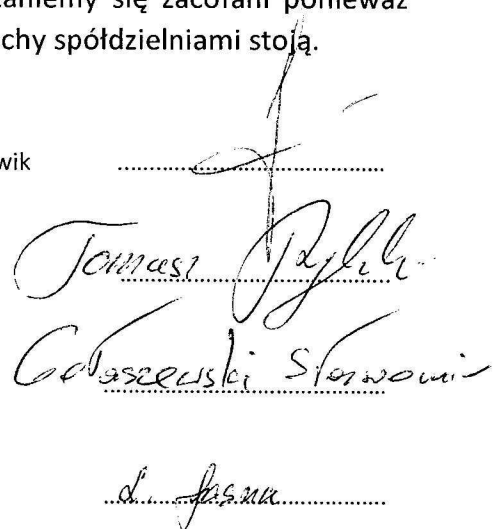 zaniemy się zacofani ponieważ
chy spółdzielniami stoją.
wik
Tomasz
Gołaszewski Sławomir
L. Jasna